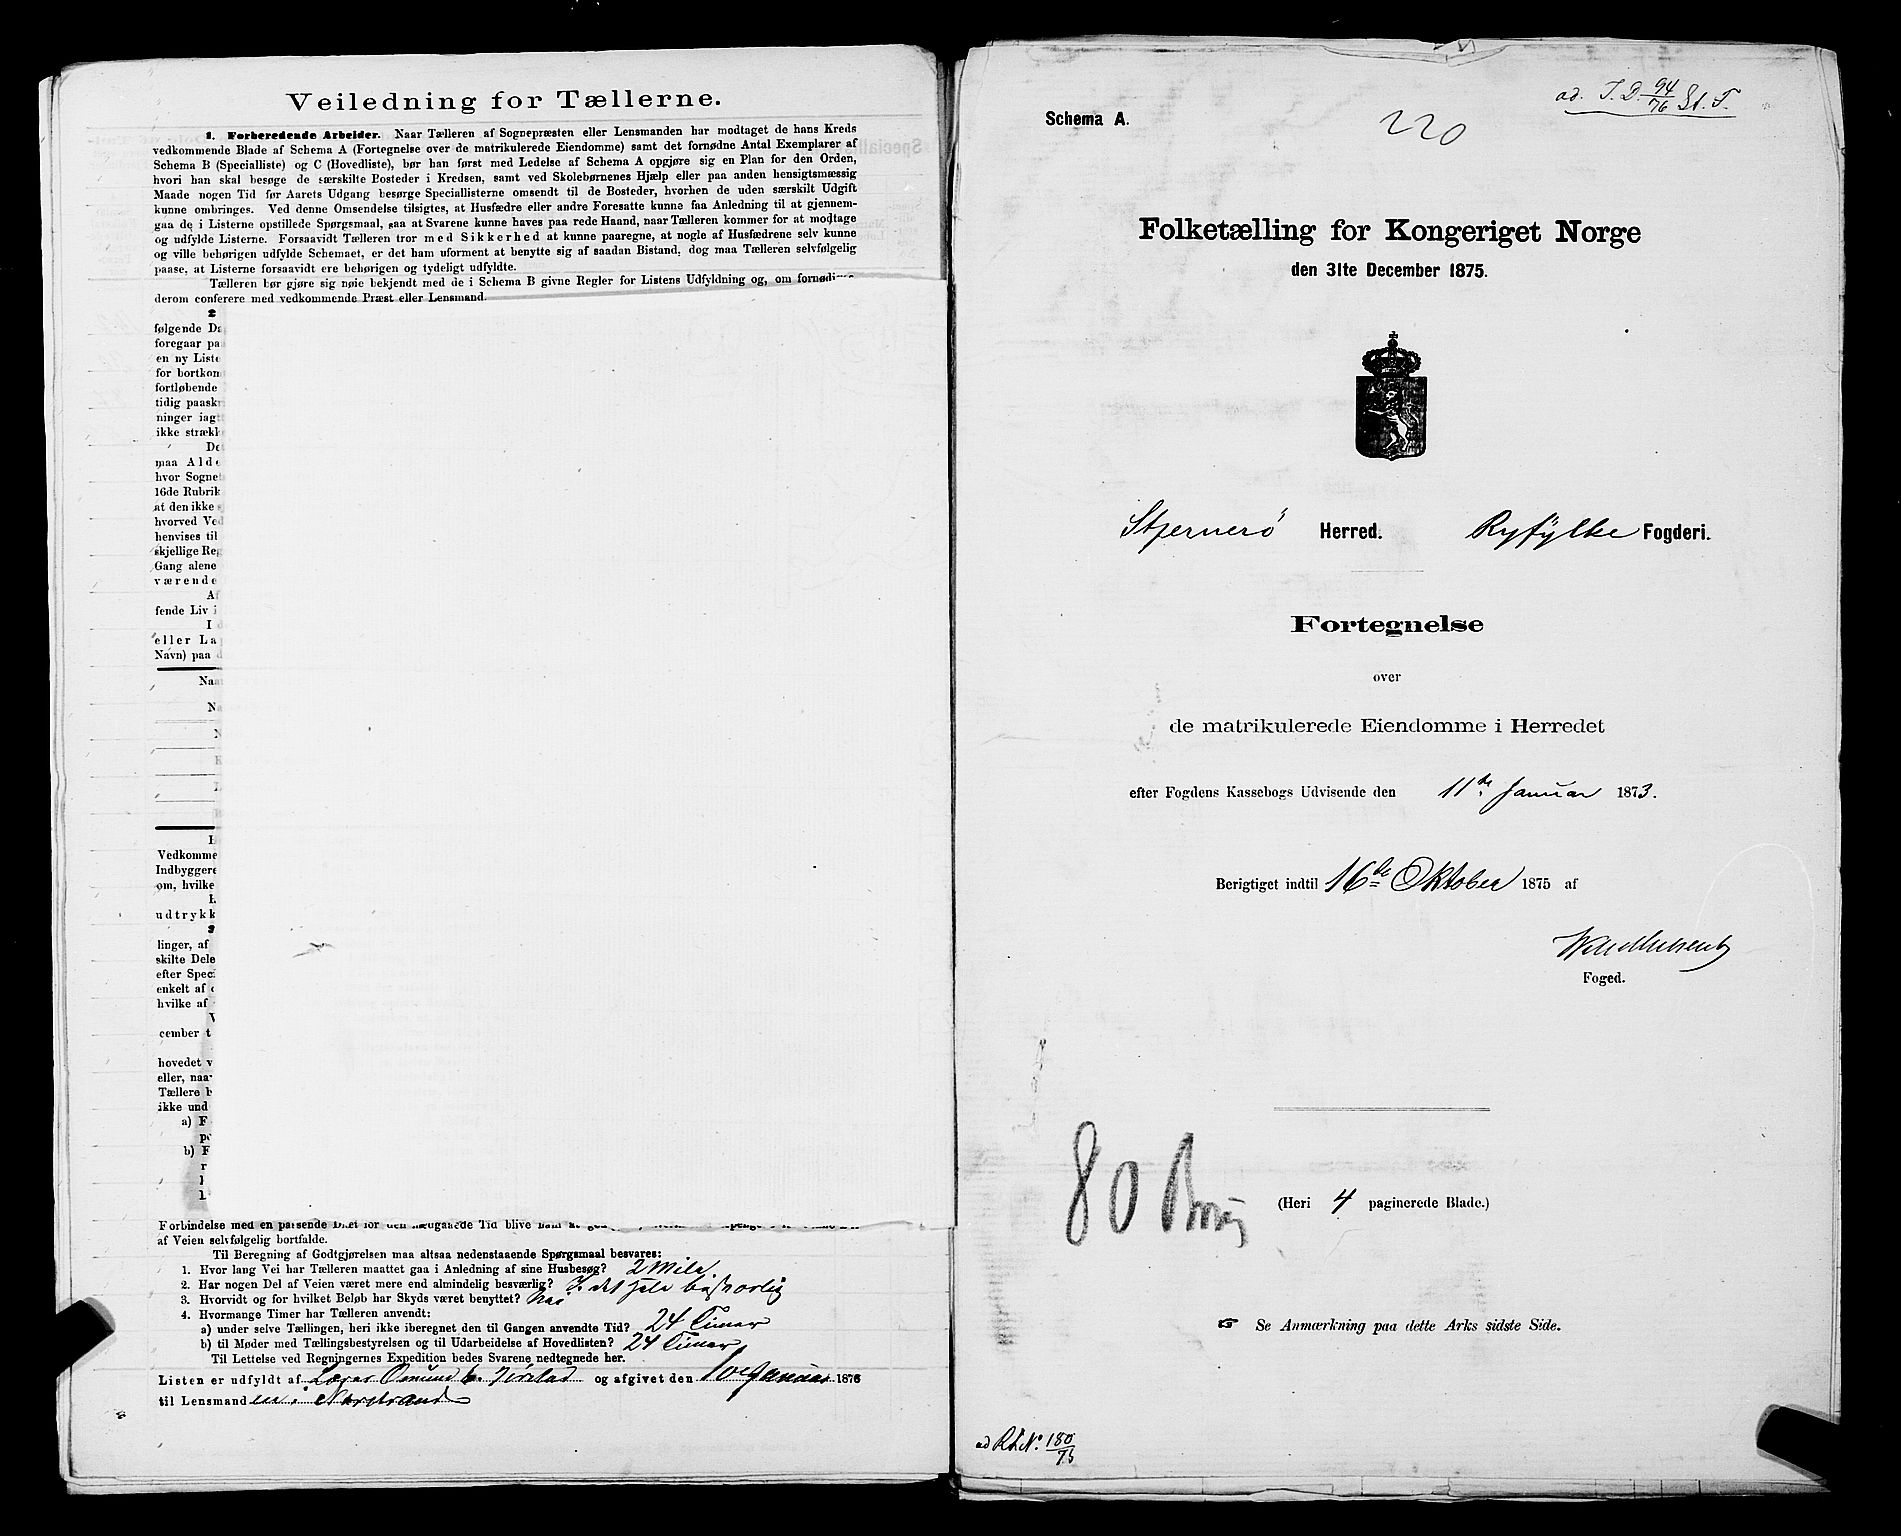 Veiledning for Tællerne.
1. Forberedende Arbeider. Naar Tælleren af Sognepræsten eller Lensmanden har modtaget de hans Kreds
vedkommende Blade af Schema A (Fortegnelse over de matrikulerede Eiendomme) samt det fornødne Antal Exemplarer af
Schema B (Specialliste) og C (Hovedliste), bør han først med Ledelse af Schema A opgjøre sig en Plan for den Orden,
hvori han skal besøge de særskilte Bosteder i Kredsen, samt ved Skolebørnenes Hjælp eller paa anden hensigtsmæssig
Maade nogen Tid før Aarets Udgang besørge Speciallisterne omsendt til de Bosteder, hvorhen de uden særskilt Udgift
kunne ombringes. Ved denne Omsendelse tilsigtes, at Husfædre eller andre Foresatte kunne faa Anledning til at gjennem-
gaa de i Listerne opstillede Spørgsmaal, saa at Svarene kunne haves paa rede Haand, naar Tælleren kommer for at modtage
og udfylde Listerne. Forsaavidt Tælleren tror med Sikkerhed at kunne paaregne, at nogle af Husfædrene selv kunne
og ville behørigen udfylde Schemaet, er det ham uforment at benytte sig af saadan Bistand, dog maa Tælleren selvfølgelig
paase, at Listerne forsaavidt ere behørigen og tydeligt udfyldte.
Tælleren bør gjøre sig nøie bekjendt med de i Schema B givne Regler for Listens Udfyldning og, om fornødi
derom conferere med vedkommende Præst eller Lensmand.
2
følgende Da
foregaar pa
en ny Liste
for bortkom
fortløbende
tidig paaskr
ninger iagt
ikke strækk
De
maa Alde
hvor Sognet
16de Rubrik
at den ikke s
hvorved Ved
henvises til
skjellige Reg
Gang alene
værende
Af
fende Liv i
I d
eller La
Navn) paa d
Naa
Na
N
Vedkomme
Indbyggere
om, hvilke
udtrykk
linger, af
skilte Dele
efter Speci
enkelt af
hvilke af
cember t
hovedet v
eller, naar
Tællere b
ikke und
a) F
pe
b) F
r
Forbindelse med en passende Diæt for den medgaaede Tid blive ham at
af Veien selvfølgelig bortfalde.
Til Beregning af Godtgjørelsen maa altsaa nedenstaaende Spørgsmaal besvares:
1. Hvor lang Vei har Tælleren maattet gaa i Anledning af sine Husbesøg? 2 Mile
2. Har nogen Del af Veien været mere end almindelig besværlig? I det hele besværlig
3. Hvorvidt og for hvilket Beløb har Skyds været benyttet?
4. Hvormange Timer har Tælleren anvendt:
a) under selve Tællingen, heri ikke iberegnet den til Gangen anvendte Tid? 24 Timer
b) til Møder med Tællingsbestyrelsen og til Udarbeidelse af Hovedlisten? 24 Timer
Til Lettelse ved Regningernes Expedition bedes Svarene nedtegnede her.
Listen er udfyldt af Lærer Osmund og afgivet den Januar 1876
til Lensmanden i Narstrand
Schema A.
ad. J. D. 94/76 St. F.
220
Folketælling for Kongeriget Norge
den 31te December 1875.
Stjernerö Herred. Ryfylke Fogderi.
Fortegnelse
over
de matrikulerede Eiendomme i Herredet
efter Fogdens Kassebogs Udvisende den 11te Januar 1873.
Berigtiget indtil 16de Oktober 1875 af
Foged.
80 Brug
(Heri 4 paginerede Blade.)
☞ Se Anmærkning paa dette Arks sidste Side.
ad R.L.No. 180/75